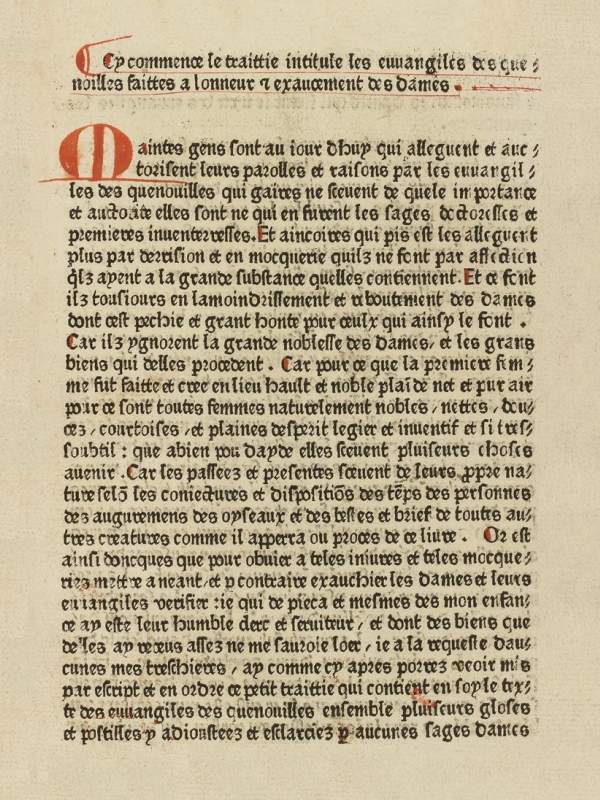 Cy commence le traittie intitule les euuangiles des que⸗
noilles faittes a lonneur ⁊ exaucement des dames.
Maintes gens sont au iour dhuy qui alleguent et auc⸗
torisent leurs parolles et raisons par les euuangil⸗
les des quenouilles qui gaires ne sceuent de quele importance
et auctorite elles sont ne qui en furent les sages doctoresses et
premieres inuenterresses. Et aincoires qui pis est les alleguent
plus par derrision et en mocquerie quilz ne font par affection
q̄lz ayent a la grande substance quelles contiennent. Et ce font
ilz tousiours en lamoindrissement et reboutement des dames
dont cest pechie et grant honte pour ceulx qui ainsy le font .
Car ilz ygnorent la grande noblesse des dames, et les grans
biens qui delles procedent . Car pour ce que la premiere fem⸗
me fut faitte et cree en lieu hault et noble plaī de net et pur air
pour ce sont toutes femmes naturelement nobles / nettes / doul⸗
cez / courtoises / et plaines desperit legier et inuentif et si tres⸗
soubtil : que abien pou dayde elles sceuent pluiseurs choses
auenir . Car les passeez et presentes sceuent de leurs ꝓpre na⸗
ture selō les coniectures et dispositiōs des tēps des personnes
des auguremens des oyseaux et des bestes et brief de toutes au⸗
tres creatures comme il apperra ou proces de ce liure . Or est
ainsi doncques que pour obuier a teles iniures et teles mocque⸗
riez mettre a neant / et y contraire exauchier les dames et leurs
euuangiles verifier : ie qui de pieca et mesmes des mon enfan⸗
ce ay este leur humble clerc et seruiteur / et dont des biens que
delles ay receus assez ne me sauroie loer / ie a la requeste dau⸗
cunes mes treschieres / ay comme cy apres porrez veoir mis
par escript et en ordre ce petit traittie qui contient en soy le tex⸗
te des euuangiles des quenouilles ensemble pluiseurs gloses
et postilles y adiousteez et esclarciez ꝑ aucunes sages dames